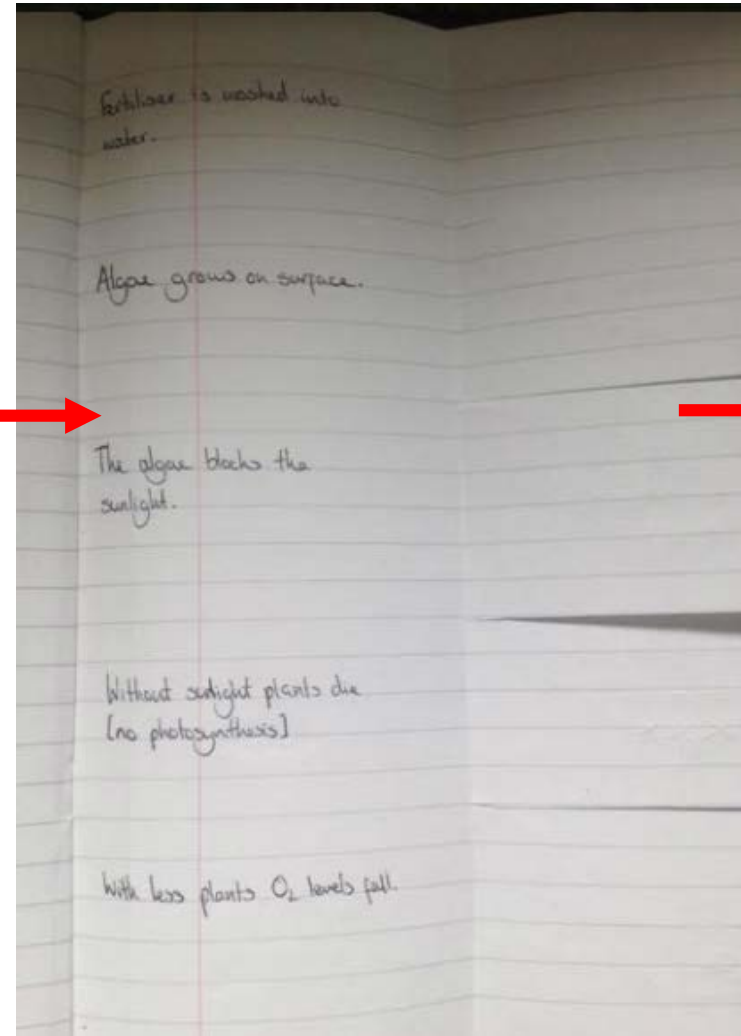 Fertiliser is washed into
water.
Algae grows on surface.
The algae blocks the
sunlight.
Without sunlight plants die
[no photosynthesis]
With less plants O₂ levels fall.